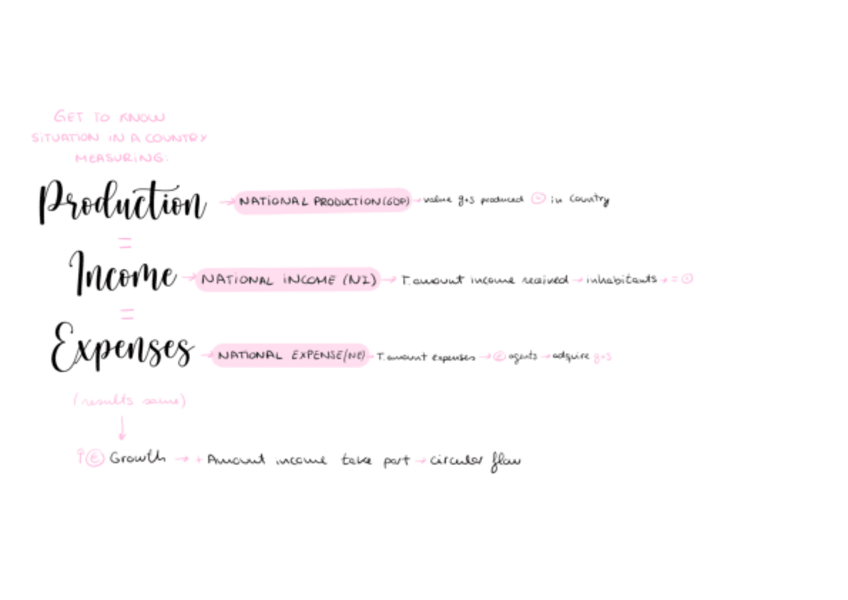 GET TO KNOW
SITUATION IN A COUNTRY
MEASURING.
Production → NATIONAL PRODUCTION (GDP) → value g+s produced in country
=
Income → NATIONAL INCOME (NI) → T. amount income received → inhabitants → =
=
Expenses → NATIONAL EXPENSE (NE) → T. amount expenses → E agents → adquire g+s
(results same)
↓
↑ E Growth → + Amount income take part → circular flow